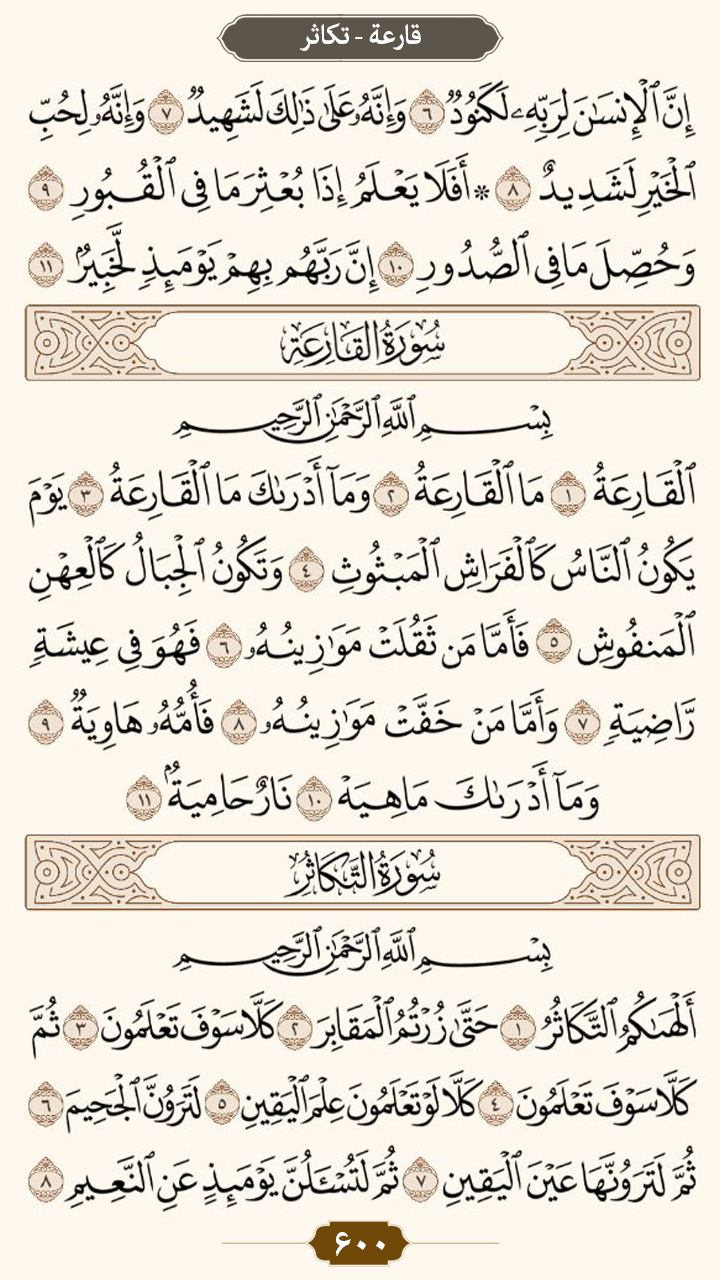 قارعة - تكاثر
إِنَّ ٱلْإِنسَـٰنَ لِرَبِّهِۦ لَكَنُودٌ ٦ وَإِنَّهُۥ عَلَىٰ ذَٰلِكَ لَشَهِيدٌ ٧ وَإِنَّهُۥ لِحُبِّ
ٱلْخَيْرِ لَشَدِيدٌ ٨ ۞ أَفَلَا يَعْلَمُ إِذَا بُعْثِرَ مَا فِى ٱلْقُبُورِ ٩
وَحُصِّلَ مَا فِى ٱلصُّدُورِ ١٠ إِنَّ رَبَّهُم بِهِمْ يَوْمَئِذٍ لَّخَبِيرٌۢ ١١
سُورَةُ القَارِعَةِ
بِسْمِ ٱللَّهِ ٱلرَّحْمَـٰنِ ٱلرَّحِيمِ
ٱلْقَارِعَةُ ١ مَا ٱلْقَارِعَةُ ٢ وَمَآ أَدْرَىٰكَ مَا ٱلْقَارِعَةُ ٣ يَوْمَ
يَكُونُ ٱلنَّاسُ كَٱلْفَرَاشِ ٱلْمَبْثُوثِ ٤ وَتَكُونُ ٱلْجِبَالُ كَٱلْعِهْنِ
ٱلْمَنفُوشِ ٥ فَأَمَّا مَن ثَقُلَتْ مَوَٰزِينُهُۥ ٦ فَهُوَ فِى عِيشَةٍ
رَّاضِيَةٍ ٧ وَأَمَّا مَنْ خَفَّتْ مَوَٰزِينُهُۥ ٨ فَأُمُّهُۥ هَاوِيَةٌ ٩
وَمَآ أَدْرَىٰكَ مَا هِيَهْ ١٠ نَارٌ حَامِيَةٌۢ ١١
سُورَةُ التَّكَاثُرِ
بِسْمِ ٱللَّهِ ٱلرَّحْمَـٰنِ ٱلرَّحِيمِ
أَلْهَىٰكُمُ ٱلتَّكَاثُرُ ١ حَتَّىٰ زُرْتُمُ ٱلْمَقَابِرَ ٢ كَلَّا سَوْفَ تَعْلَمُونَ ٣ ثُمَّ
كَلَّا سَوْفَ تَعْلَمُونَ ٤ كَلَّا لَوْ تَعْلَمُونَ عِلْمَ ٱلْيَقِينِ ٥ لَتَرَوُنَّ ٱلْجَحِيمَ ٦
ثُمَّ لَتَرَوُنَّهَا عَيْنَ ٱلْيَقِينِ ٧ ثُمَّ لَتُسْـَٔلُنَّ يَوْمَئِذٍ عَنِ ٱلنَّعِيمِ ٨
۶۰۰